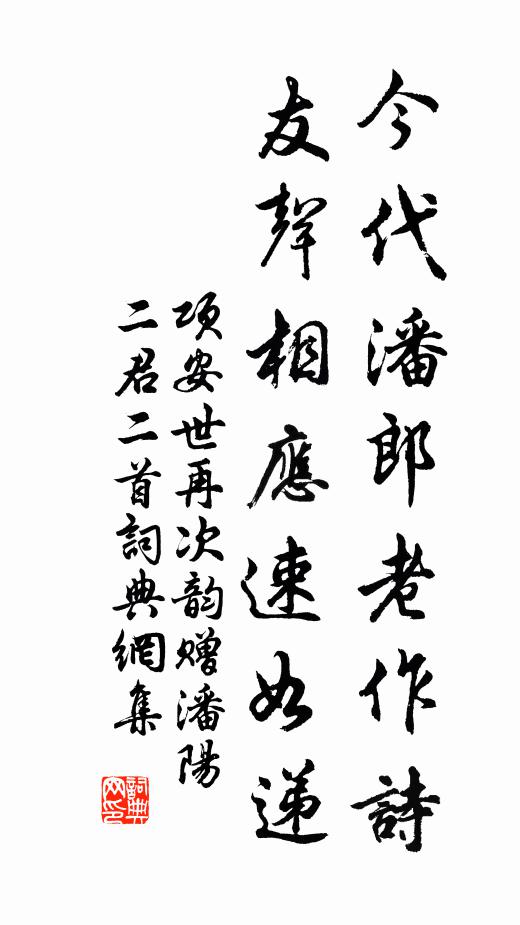 今代潘郎老作詩
友聲相應速如遞
項安世再次韵贈潘陽
二君二首詞典網集
詞典网印